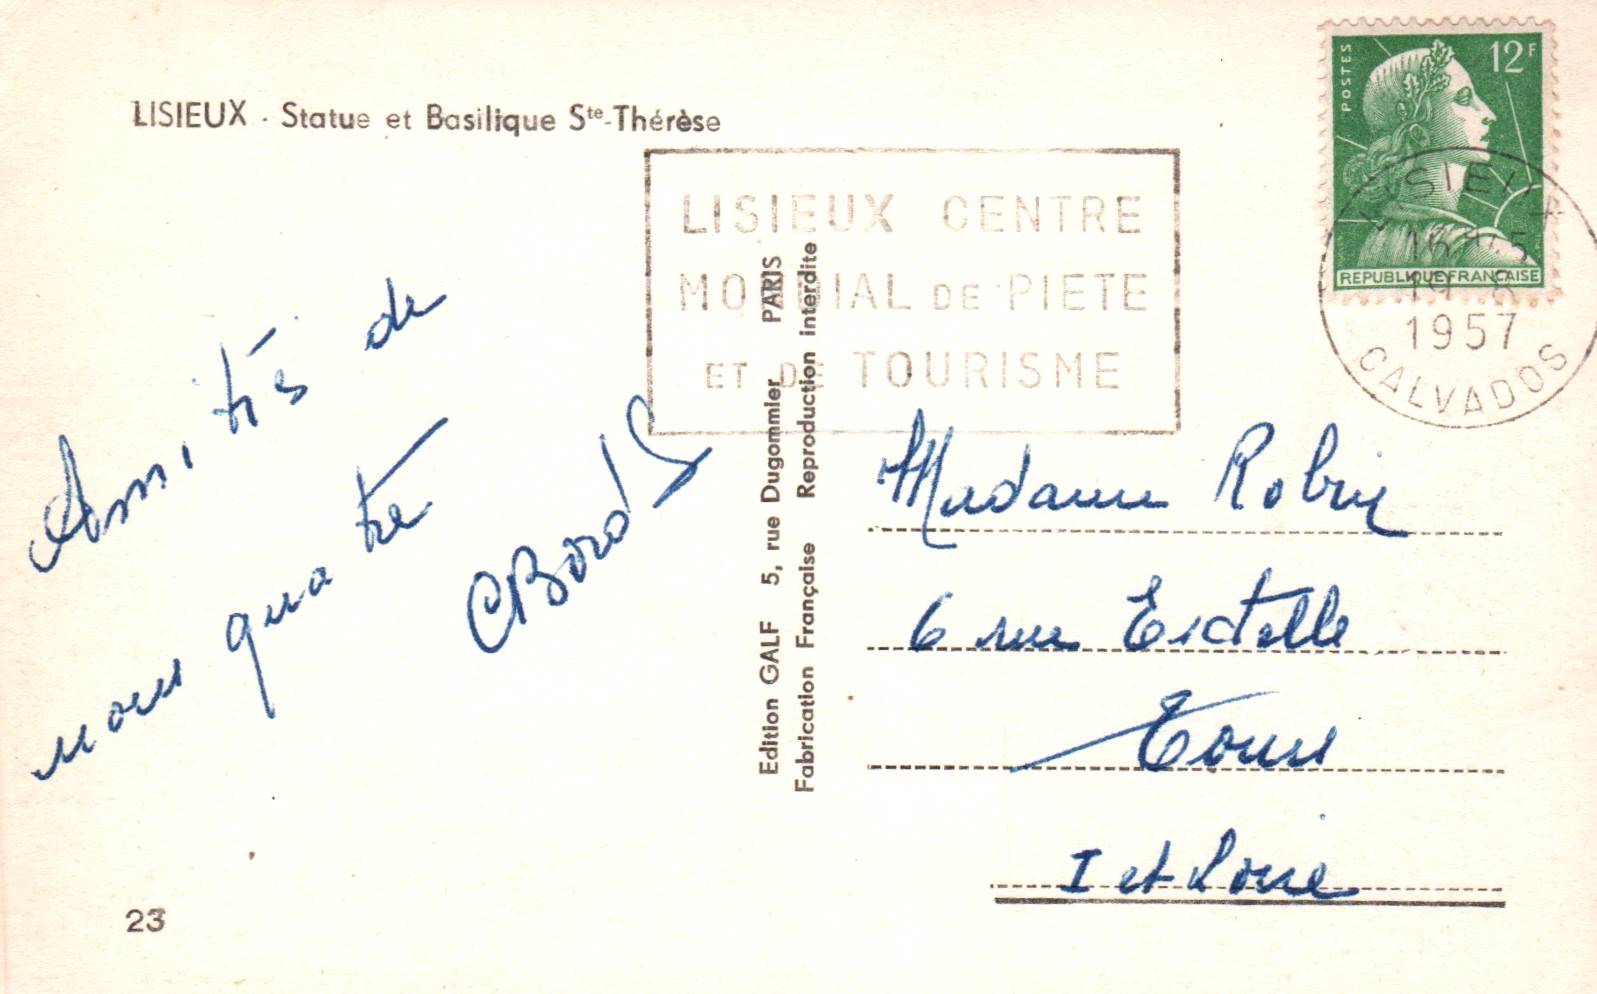 LISIEUX - Statue et Basilique Ste-Thérèse
POSTES
12F
REPUBLIQUE FRANÇAISE
LISIEUX
1957
CALVADOS
LISIEUX CENTRE
MONDIAL DE PIETE
ET DE TOURISME
Amitiés de
nous quatre
Edition GALF 5, rue Dugommier PARIS
Fabrication Française Reproduction interdite
Madame Robin
6 rue
Tours
I et Loire
23